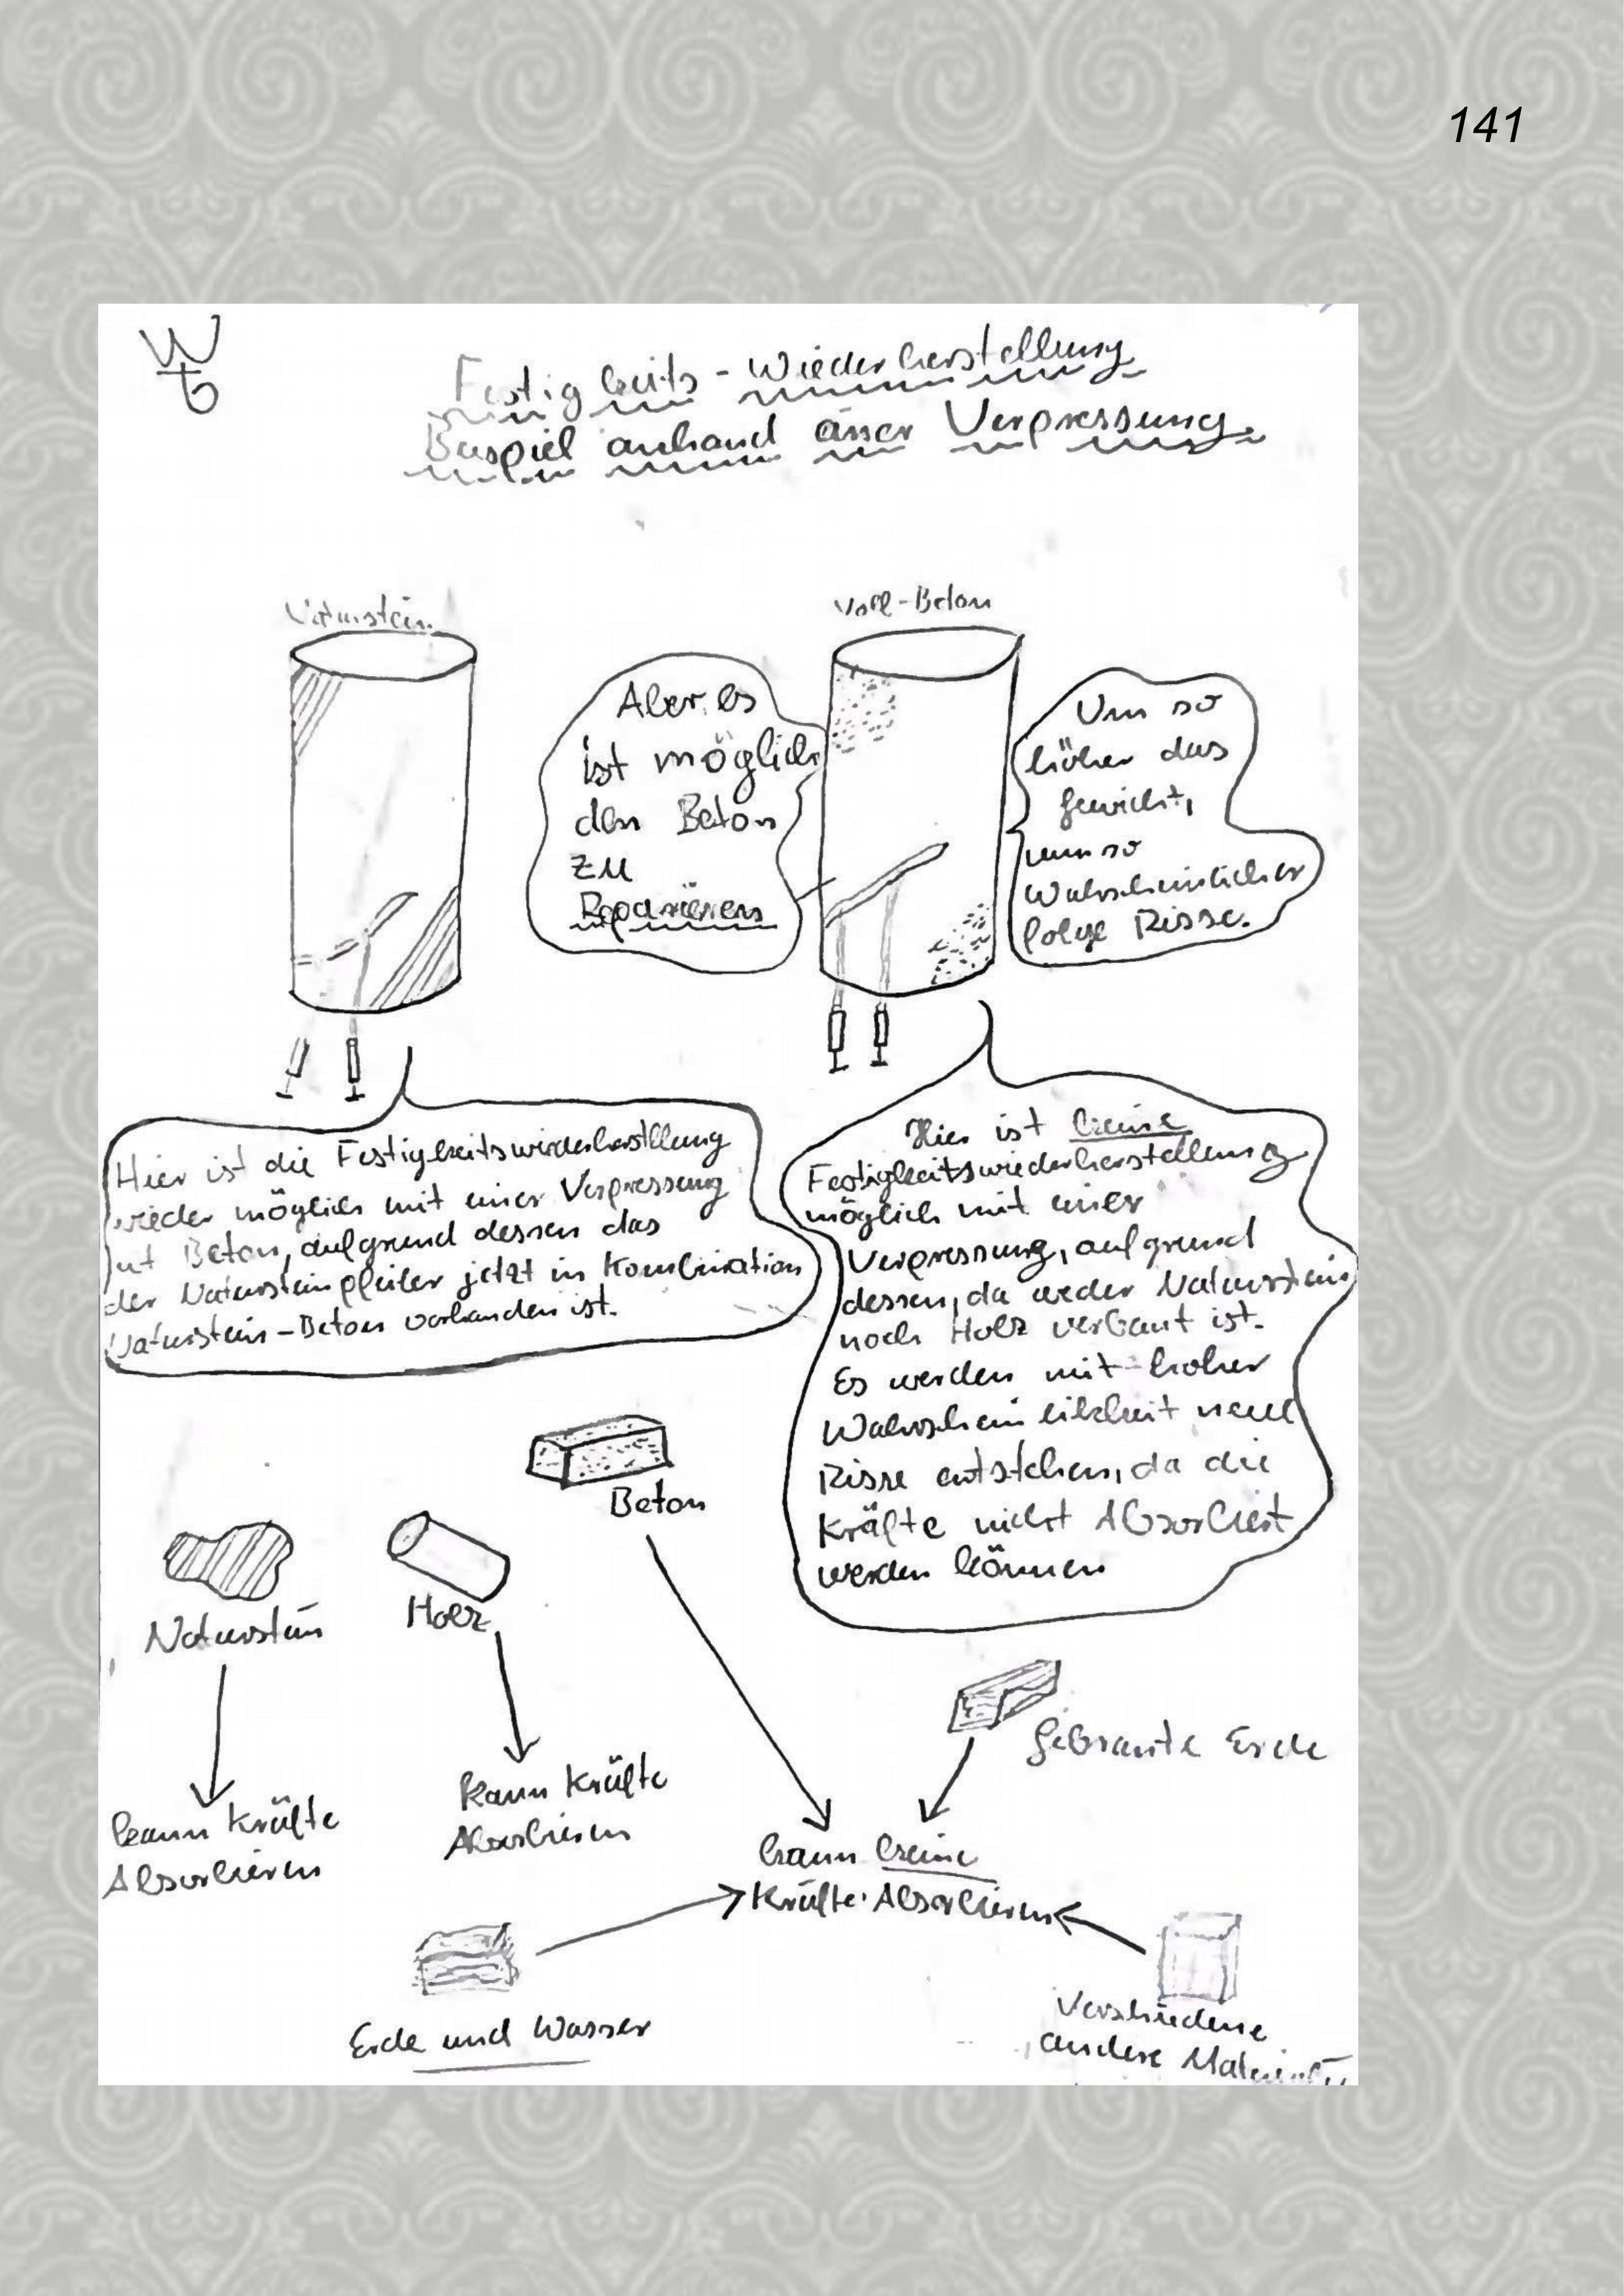 141
Festigkeits-Wiederherstellung
Beispiel anhand einer Verpressung
Naturstein
Voll-Beton
Aber es
ist möglich
den Beton
zu
Reparieren
Um so
höher das
Gewicht,
um so
Wahrscheinlicher
folge Risse.
Hier ist die Festigkeitswiederherstellung
wieder möglich mit einer Verpressung
mit Beton, aufgrund dessen das
der Natursteinpfeiler jetzt in Kombination
Naturstein-Beton vorhanden ist.
Hier ist keine
Festigkeitswiederherstellung
möglich mit einer
Verpressung, aufgrund
dessen, da weder Naturstein
noch Holz verbaut ist.
Es werden mit hoher
Wahrscheinlichkeit neue
Risse entstehen, da die
Kräfte nicht Absorbiert
werden können
Beton
Naturstein
Holz
Gebrannte Erde
kann Kräfte
Absorbieren
Kann Kräfte
Absorbieren
kann keine
Kräfte Absorbieren
Erde und Wasser
Verschiedene
andere